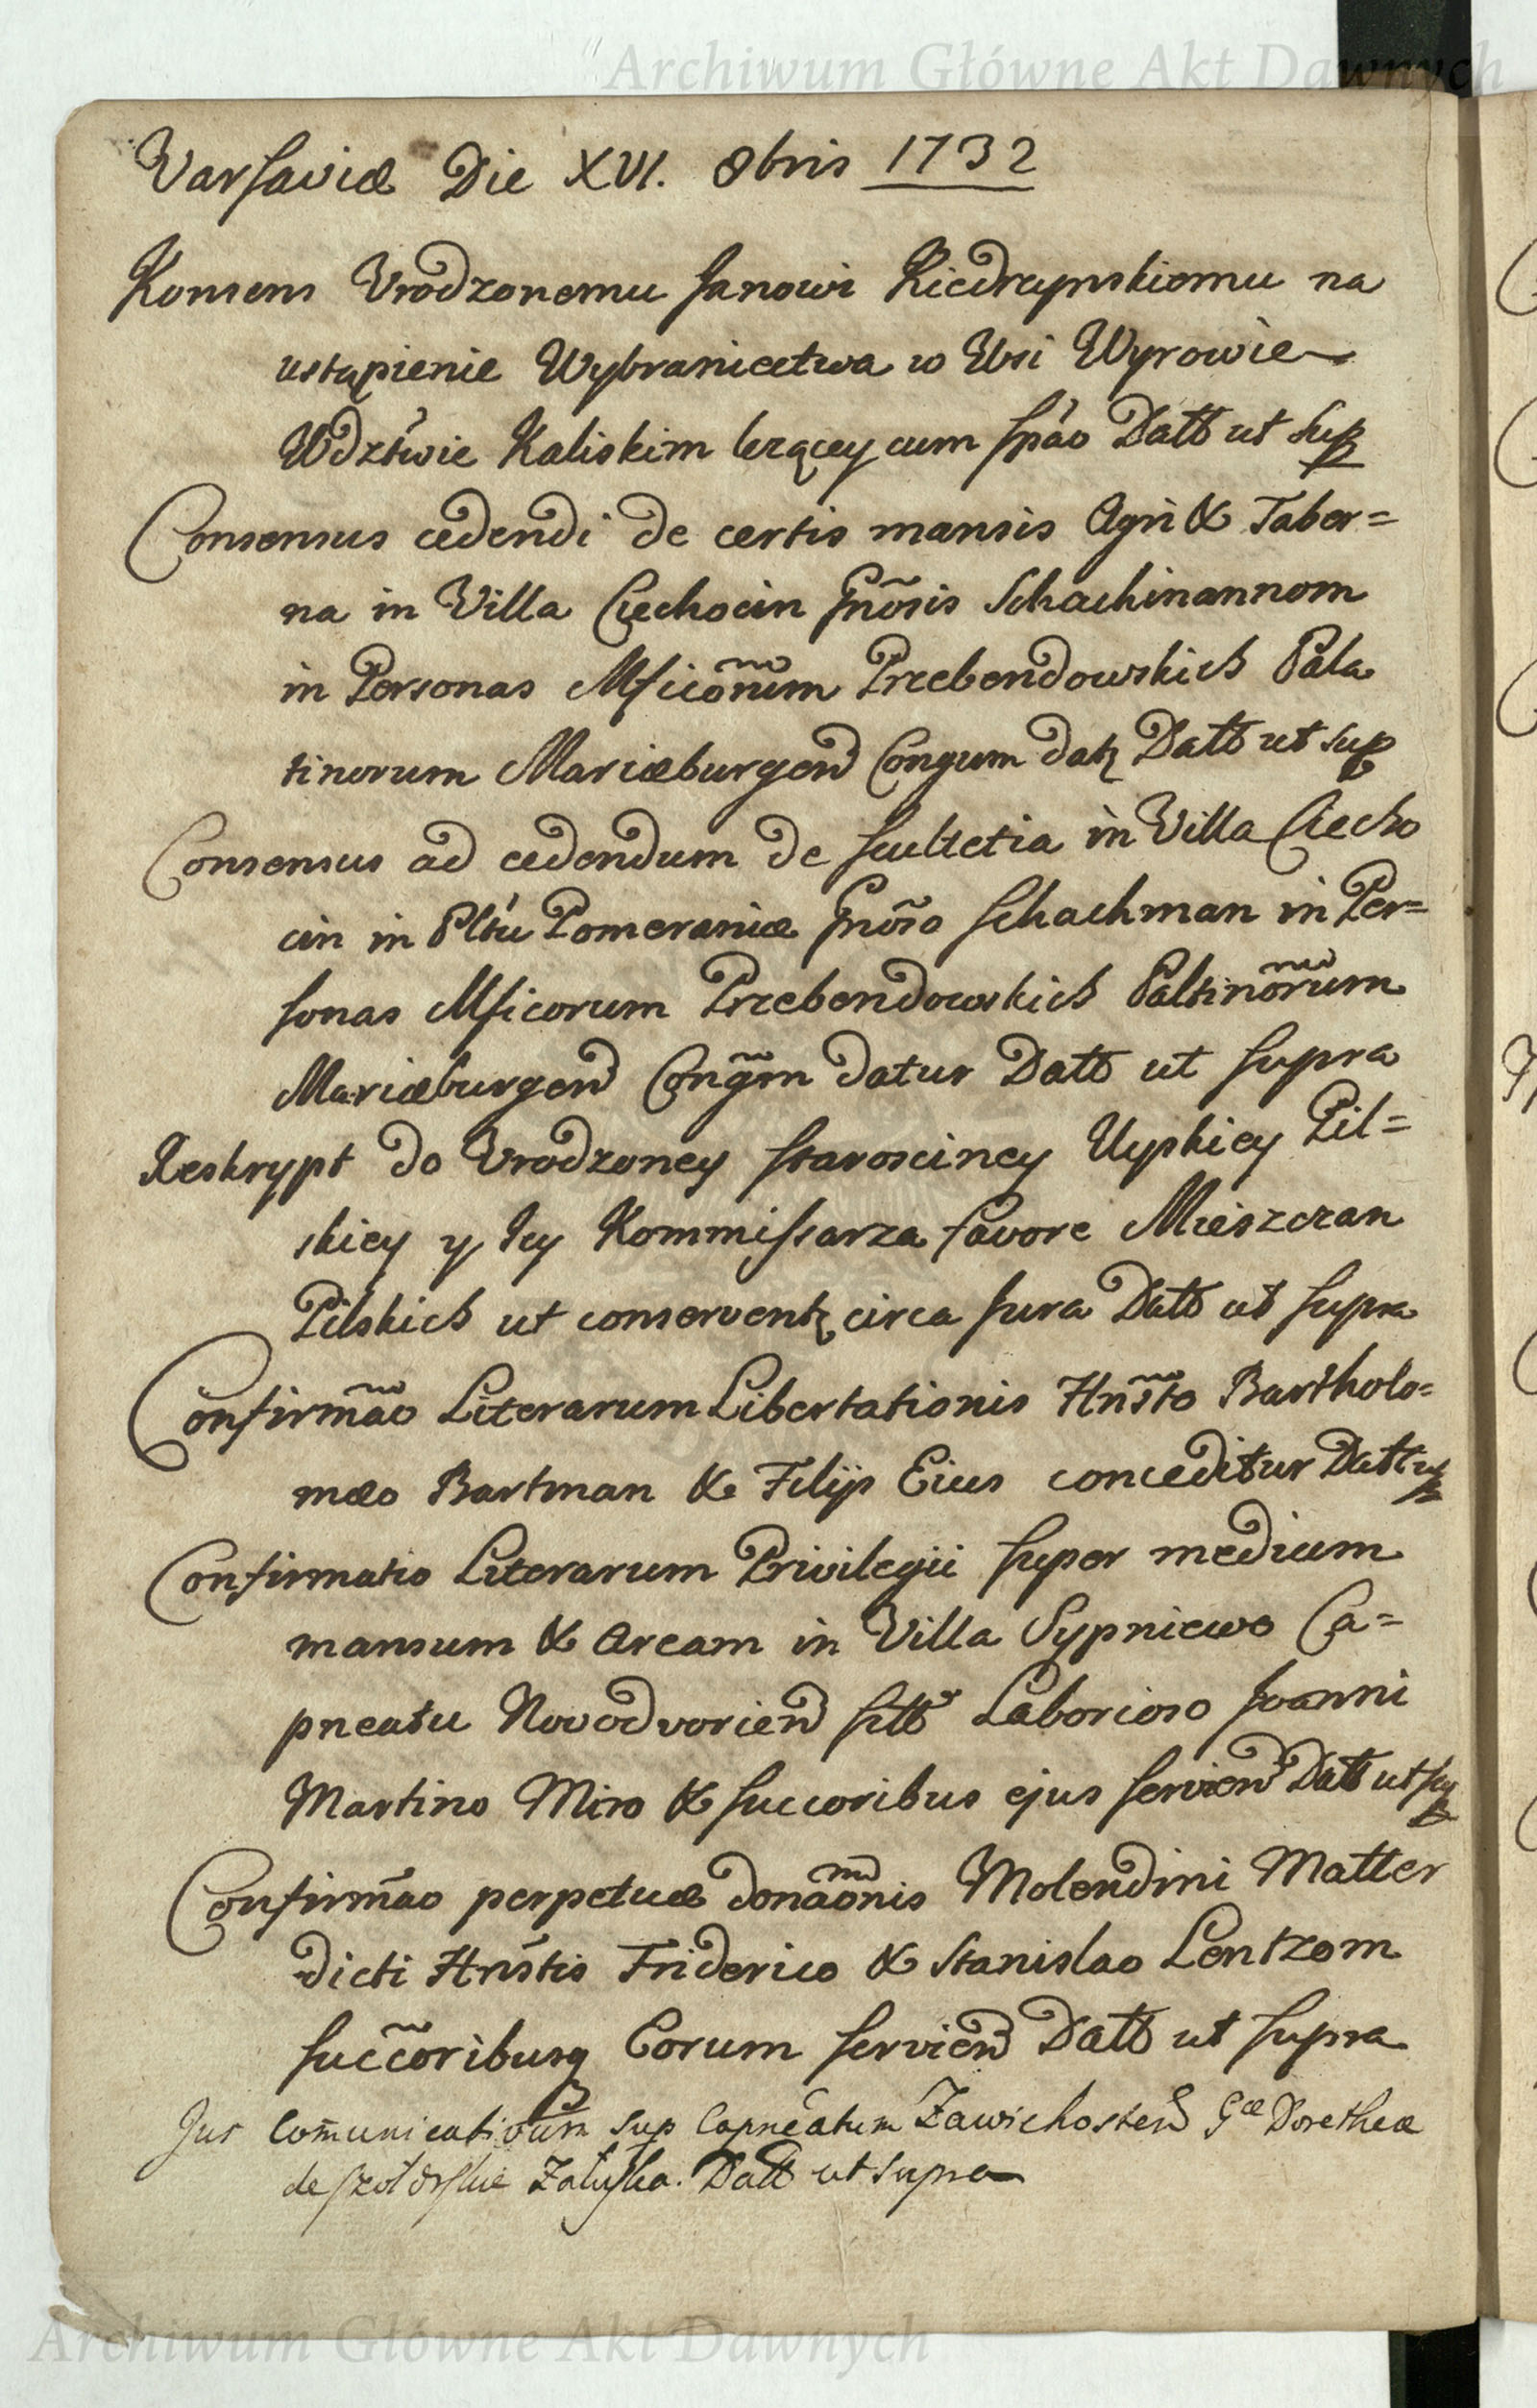 Archiwum Główne Akt Dawnych
Varsaviæ Die XVI. 8bris 1732
Konsens Vrodzonemu Janowi Kiedrzynskiemu na
ustąpienie Wybraniectwa w Wsi Wyrowie
Wdztwie Kaliskim lezącey cum spão Datt ut sup
Consensus cedendi de certis mansis Agri & Taber=
na in Villa Ciechocin Gnõsis Schachmannom
in Personas Mficõrum Przebendowskich Pala
tinorum Mariæburgen Congum datq Datt ut sup
Consensus ad cedendum de scultetia in Villa Ciecho
cin in Pltu Pomeraniæ Gnõso Schachman in Per=
sonas Mficorum Przebendowskich Paltinõrum
Mariæburgen Congm̃ datur Datt ut supra
Reskrypt do Vrodzoney Starosciney Uyskiey Pil=
skiey y Jey Kommissarza favore Mieszczan
Pilskich ut conserventq circa Jura Datt ut supra
Confirmão Literarum Libertationis Hnsto Bartholo=
mæo Bartman & Filijs Eius conceditur Datt ut sup
Confirmatio Literarum Privilegii super medium
mansum & Aream in Villa Sypniewo Ca=
pneatu Novodvorien sitt Laborioso Joanni
Martino Miro & succoribus ejus servien Datt ut sup
Confirmão perpetuæ donãonis Molendini Matter
dicti Hnstis Friderico & Stanislao Lentzom
succoribusq Eorum servien Datt ut supra
Jus Com̃unicativum sup Capneatum Zawichosten Gæ Dorotheæ
de Załuska. Datt ut supra
Archiwum Główne Akt Dawnych